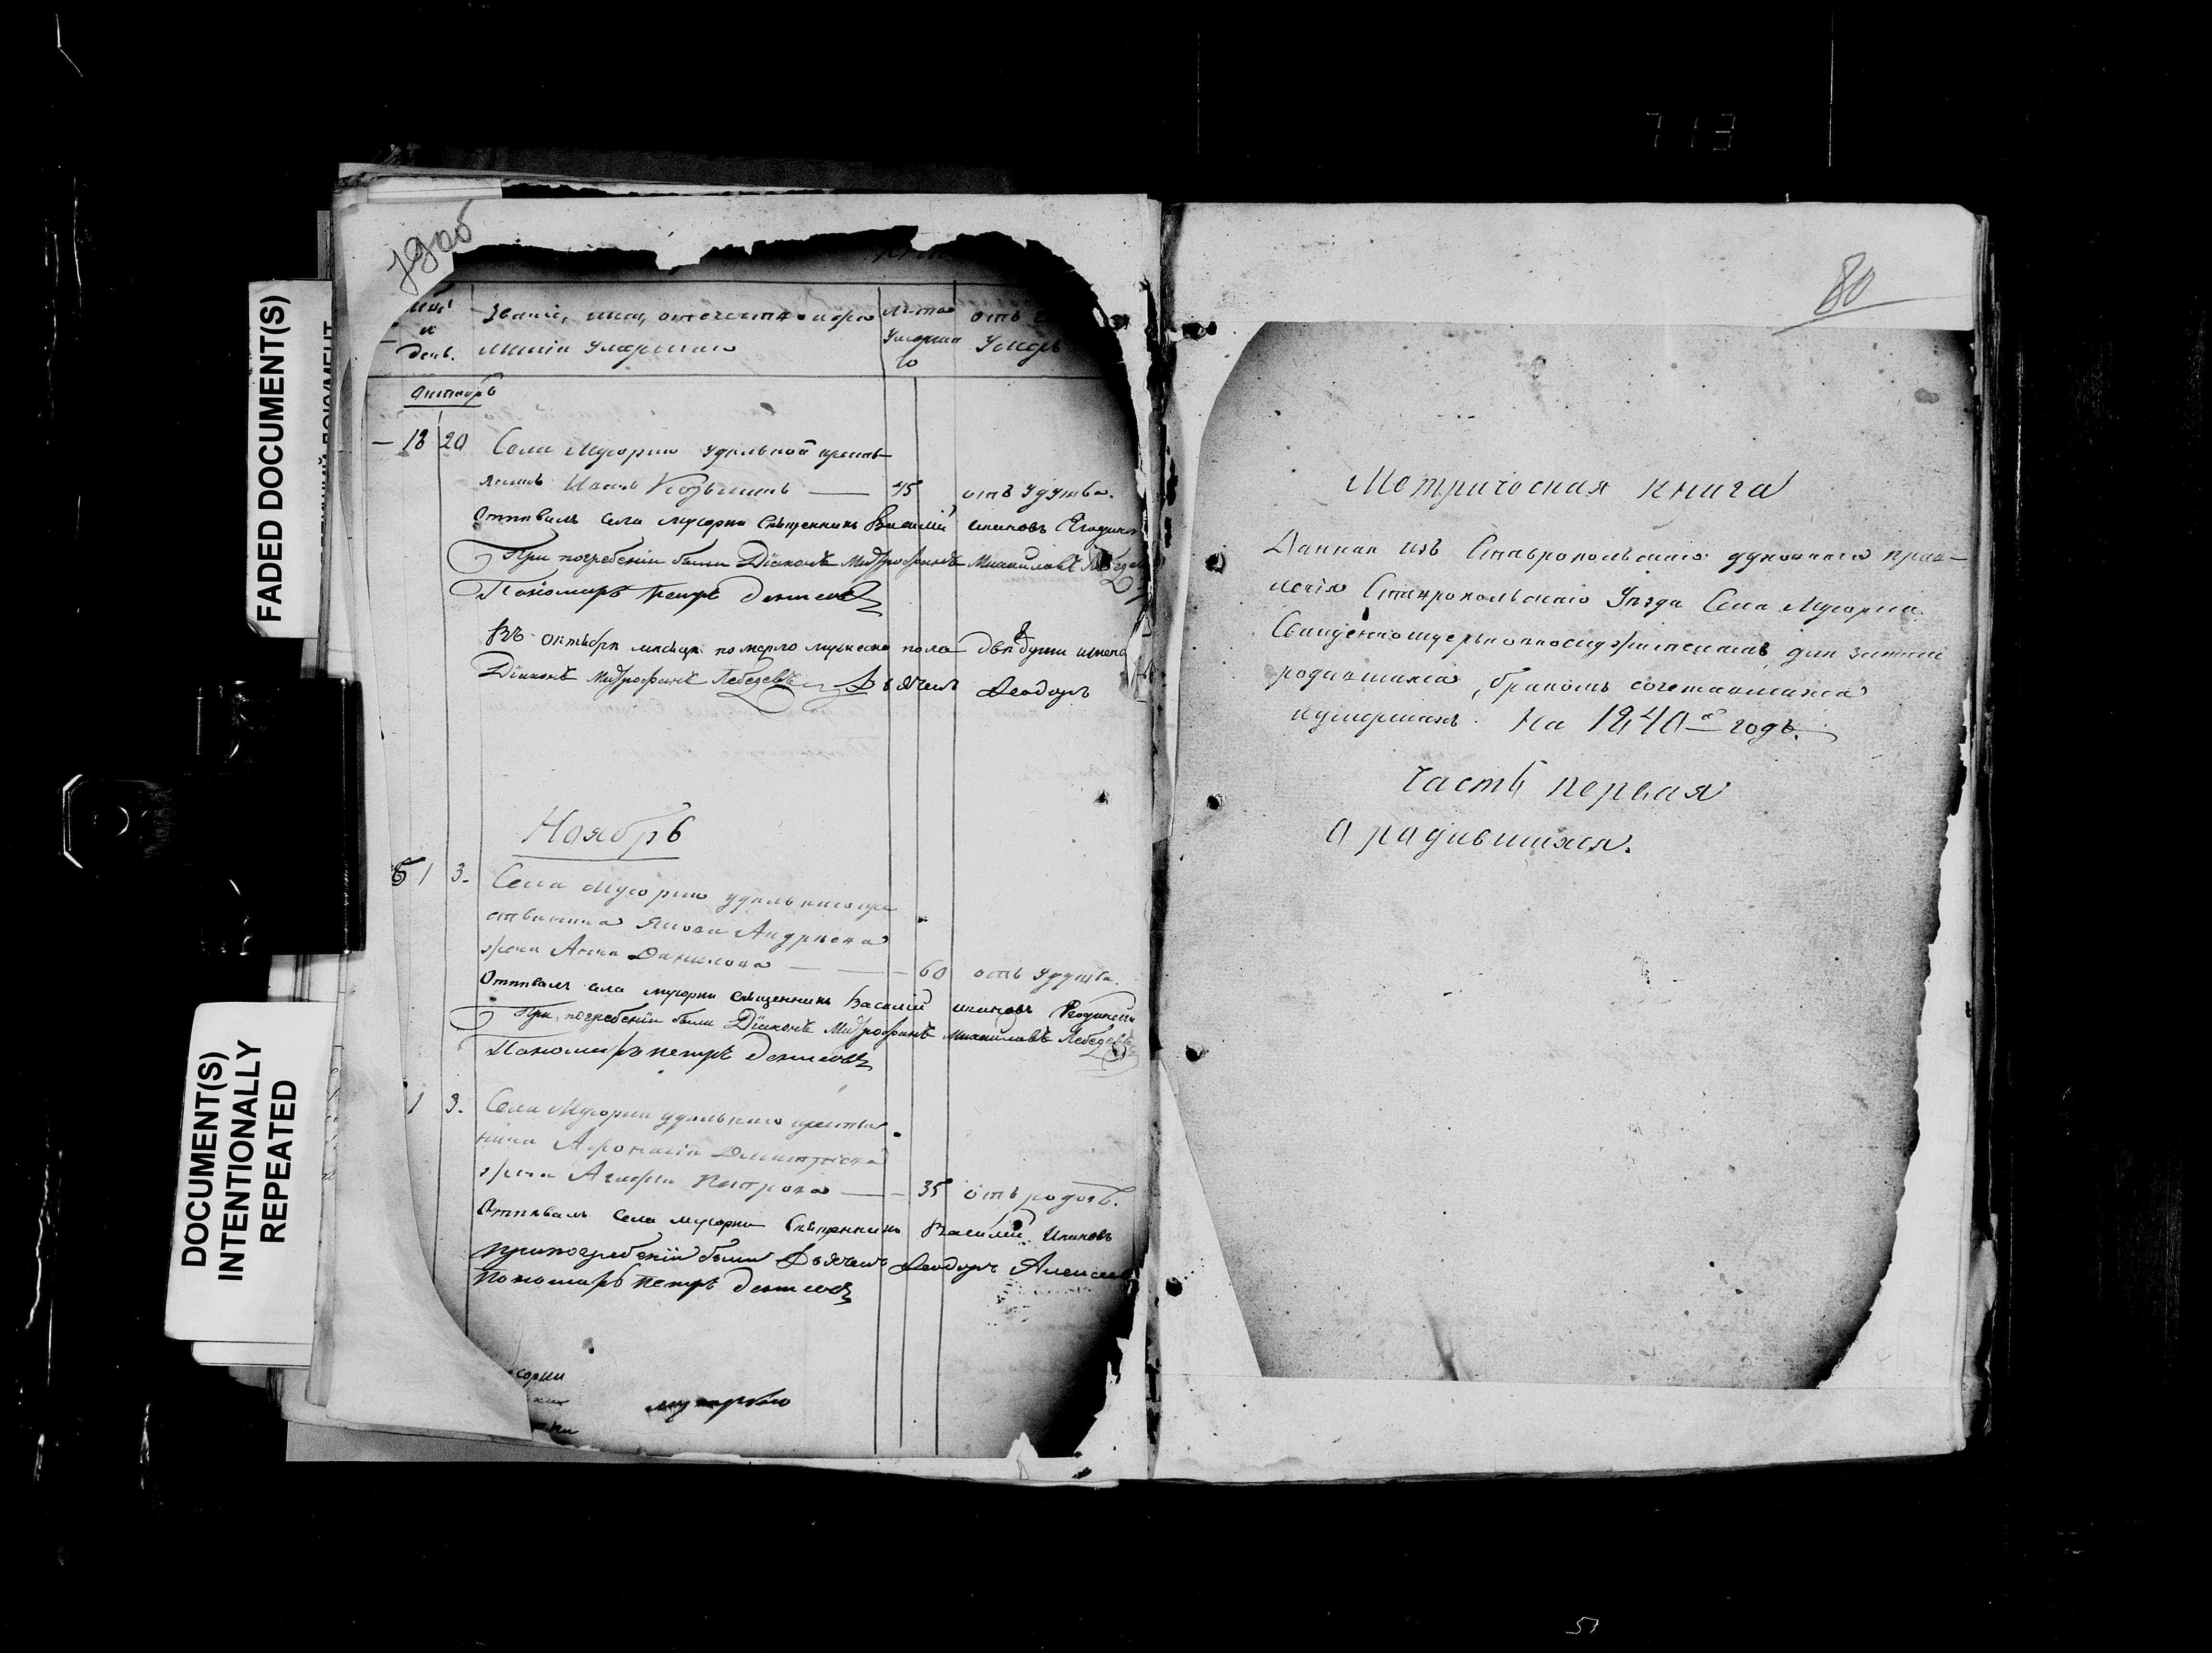 713
FADED DOCUMENT(S)
DOCUMENT(S)
INTENTIONALLY
REPEATED
79об
и
день.
Званіе, имя, отечество и
умершаго
Лета
Умерша
го
отъ
Умеръ
Октябрь
18 20 Села Мусорки удельной кресть
янинъ Козьминъ — 45 отъ удушья.
Отпевалъ села мусорки Священникъ Василій
При погребеніи были Діаконъ Митрофанъ Михайловъ
Пономарь петръ денисовъ
Въ октябре месяце померло мужеска пола две души
Діаконъ Митрофанъ Лебедевъ Дьячекъ Феодоръ
Ноябрь
1 3. Села Мусорки удельнаго кре
стьянина Якова Андреева
жена Анна Данилова — 60 отъ удушья.
Отпевалъ села мусорки священникъ Василій
При погребеніи были Діаконъ Митрофанъ михайловъ Лебедевъ
Пономарь петръ денисовъ
1 3. Села Мусорки удельнаго крестья
нина Афонасія Дмитріева
жена Агафья Петрова — 35 отъ родовъ.
Отпевалъ Села мусорки Священникъ Василій
при погребеніи были Дьячекъ Феодоръ Алексеевъ
Пономарь петръ денисовъ
сорки
80
Метрическая книга
Данная изъ Ставропольскаго духовнаго прав-
ленія Ставропольскаго Уезда Села Мусорки
Священноцерковнослужителямъ для записи
родившихся, бракомъ сочетавшихся
и умершихъ. На 1840й годъ.
Часть первая
О родившихся.
51